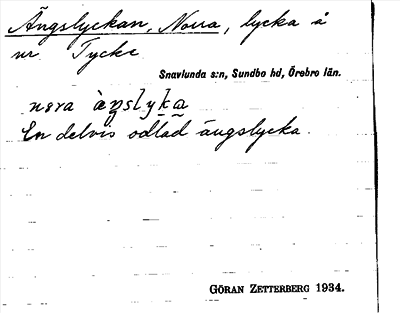 Ängslyckan, Norra, lycka å
nr Tycke
Snavlunda s:n, Sundbo hd, Örebro län.
nora ̀äŋslyka
En delvis odlad ängslycka.
GÖRAN ZETTERBERG 1934.